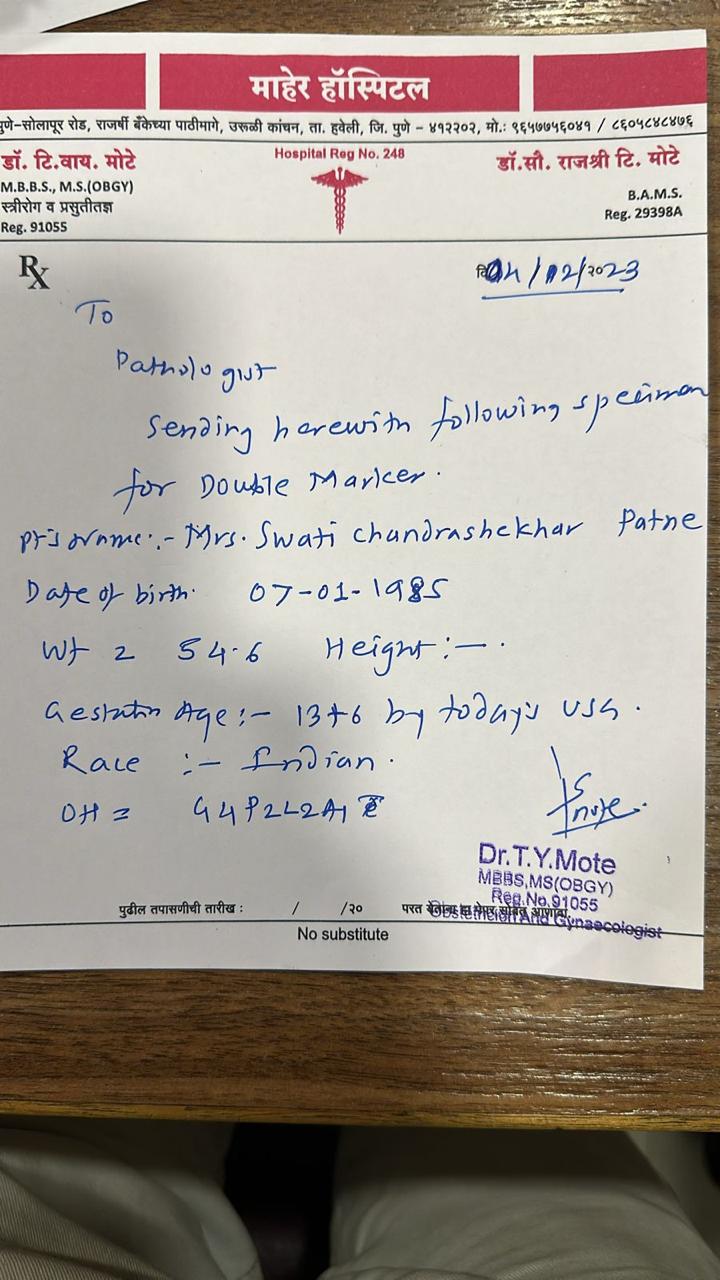 माहेर हॉस्पिटल
पुणे–सोलापूर रोड, राजर्षी बँकेच्या पाठीमागे, उरूळी कांचन, ता. हवेली, जि. पुणे – ४१२२०२, मो.: ९६५७७५६०४१ / ८६०५८४८४७६
डॉ. टि.वाय. मोटे
M.B.B.S., M.S.(OBGY)
स्त्रीरोग व प्रसुतीतज्ञ
Reg. 91055
Hospital Reg No. 248
डॉ.सौ. राजश्री टि. मोटे
B.A.M.S.
Reg. 29398A
Rx
04/12/२०23
To
Pathologist
Sending herewith following specimen
for Double Marker.
Mrs. Swati Chandrashekhar Patne
Date of birth. 07-01-1985
Wt = 54.6 Height :- .
Gestatn Age :- 13+6 by today's USG.
Race :- Indian.
OH = G4P2L2A1
Dr.T.Y.Mote
MBBS,MS(OBGY)
Reg.No.91055
Obstetricion And Gynaecologist
पुढील तपासणीची तारीख : / /२० परत येतांना हा पेपर सोबत आणावा.
No substitute